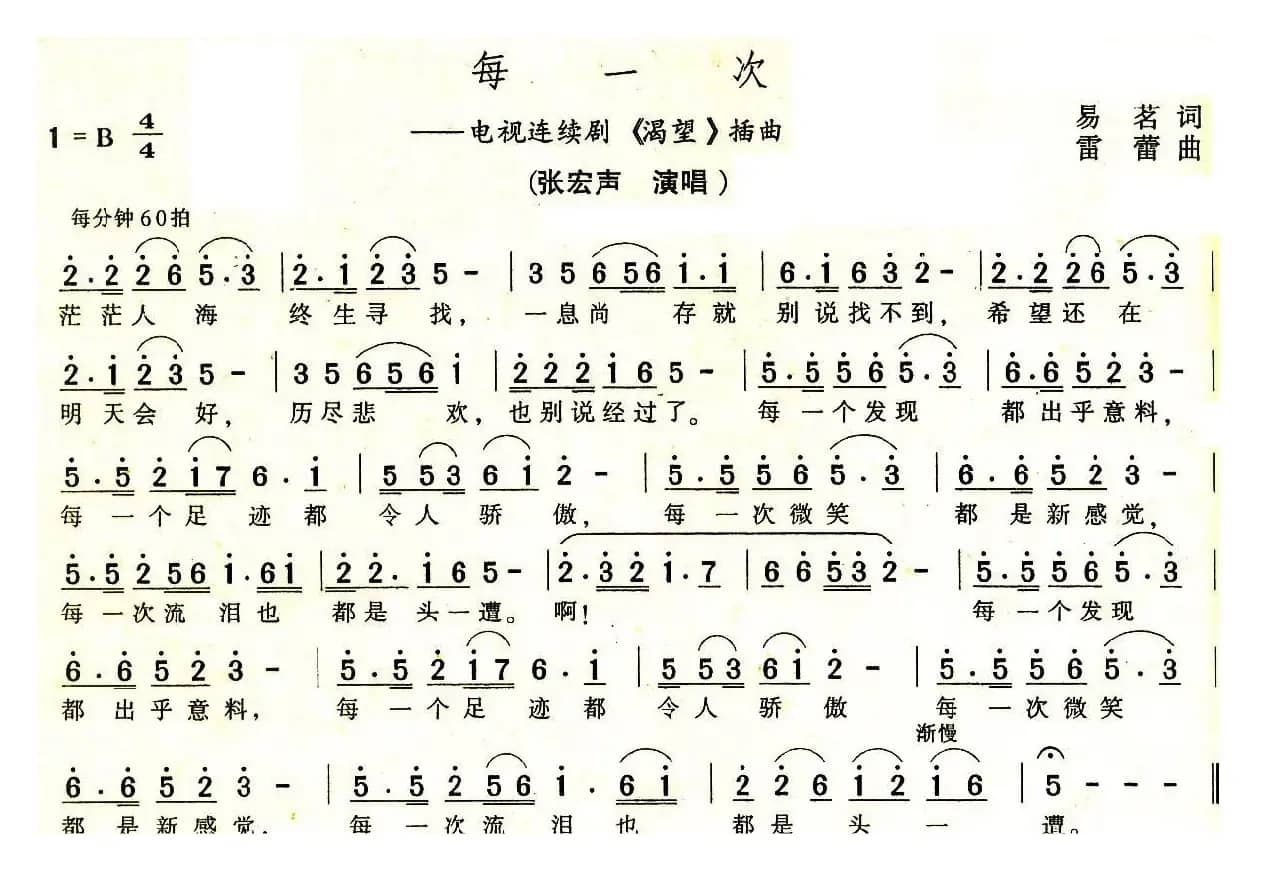 每一次
1=B 4/4
——电视连续剧《渴望》插曲
易茗词
雷蕾曲
(张宏声 演唱)
每分钟60拍
2̇.2̇ 2̇6̇ 5̇.3̇ | 2̇.1̇ 2̇3̇ 5 - | 3 5 6 56 1̇.1̇ | 6.1̇ 63̇ 2̇ - | 2̇.2̇ 2̇6̇ 5̇.3̇ |
茫茫人海 终生寻找, 一息尚存就 别说找不到, 希望还在
2̇.1̇ 2̇3̇ 5 - | 3 5 6 5 6 1̇ | 2̇2̇2̇1̇ 6 5 - | 5̇.5̇ 5̇6̇ 5̇.3̇ | 6̇.6̇ 5̇2̇ 3̇ - |
明天会好, 历尽悲欢, 也别说经过了。 每一个发现 都出乎意料,
5̇.5̇ 2̇ 1̇7 6.1̇ | 5 53 6 1̇ 2̇ - | 5̇.5̇ 5̇6̇ 5̇.3̇ | 6̇.6̇ 5̇2̇ 3̇ - |
每一个足迹都 令人骄傲, 每一次微笑 都是新感觉,
5̇.5̇ 2̇ 56 1̇.61̇ | 2̇2̇. 1̇ 6 5 - | 2̇.3̇2̇ 1̇.7 | 6 6 5̇3̇ 2̇ - | 5̇.5̇ 5̇6̇ 5̇.3̇ |
每一次流泪也 都是头一遭。 啊! 每一个发现
6̇.6̇ 5̇2̇ 3̇ - | 5̇.5̇ 2̇ 1̇7 6.1̇ | 5 53 61̇ 2̇ - | 5̇.5̇ 5̇6̇ 5̇.3̇ |
都出乎意料, 每一个足迹都 令人骄傲 每一次微笑
渐慢
6̇.6̇ 5̇2̇ 3̇ - | 5̇.5̇ 2̇ 56 1̇.6 1̇ | 2̇ 2̇6 1̇2̇ 1̇6 | 5 - - - ‖
都是新感觉, 每一次流泪也 都是头一遭。